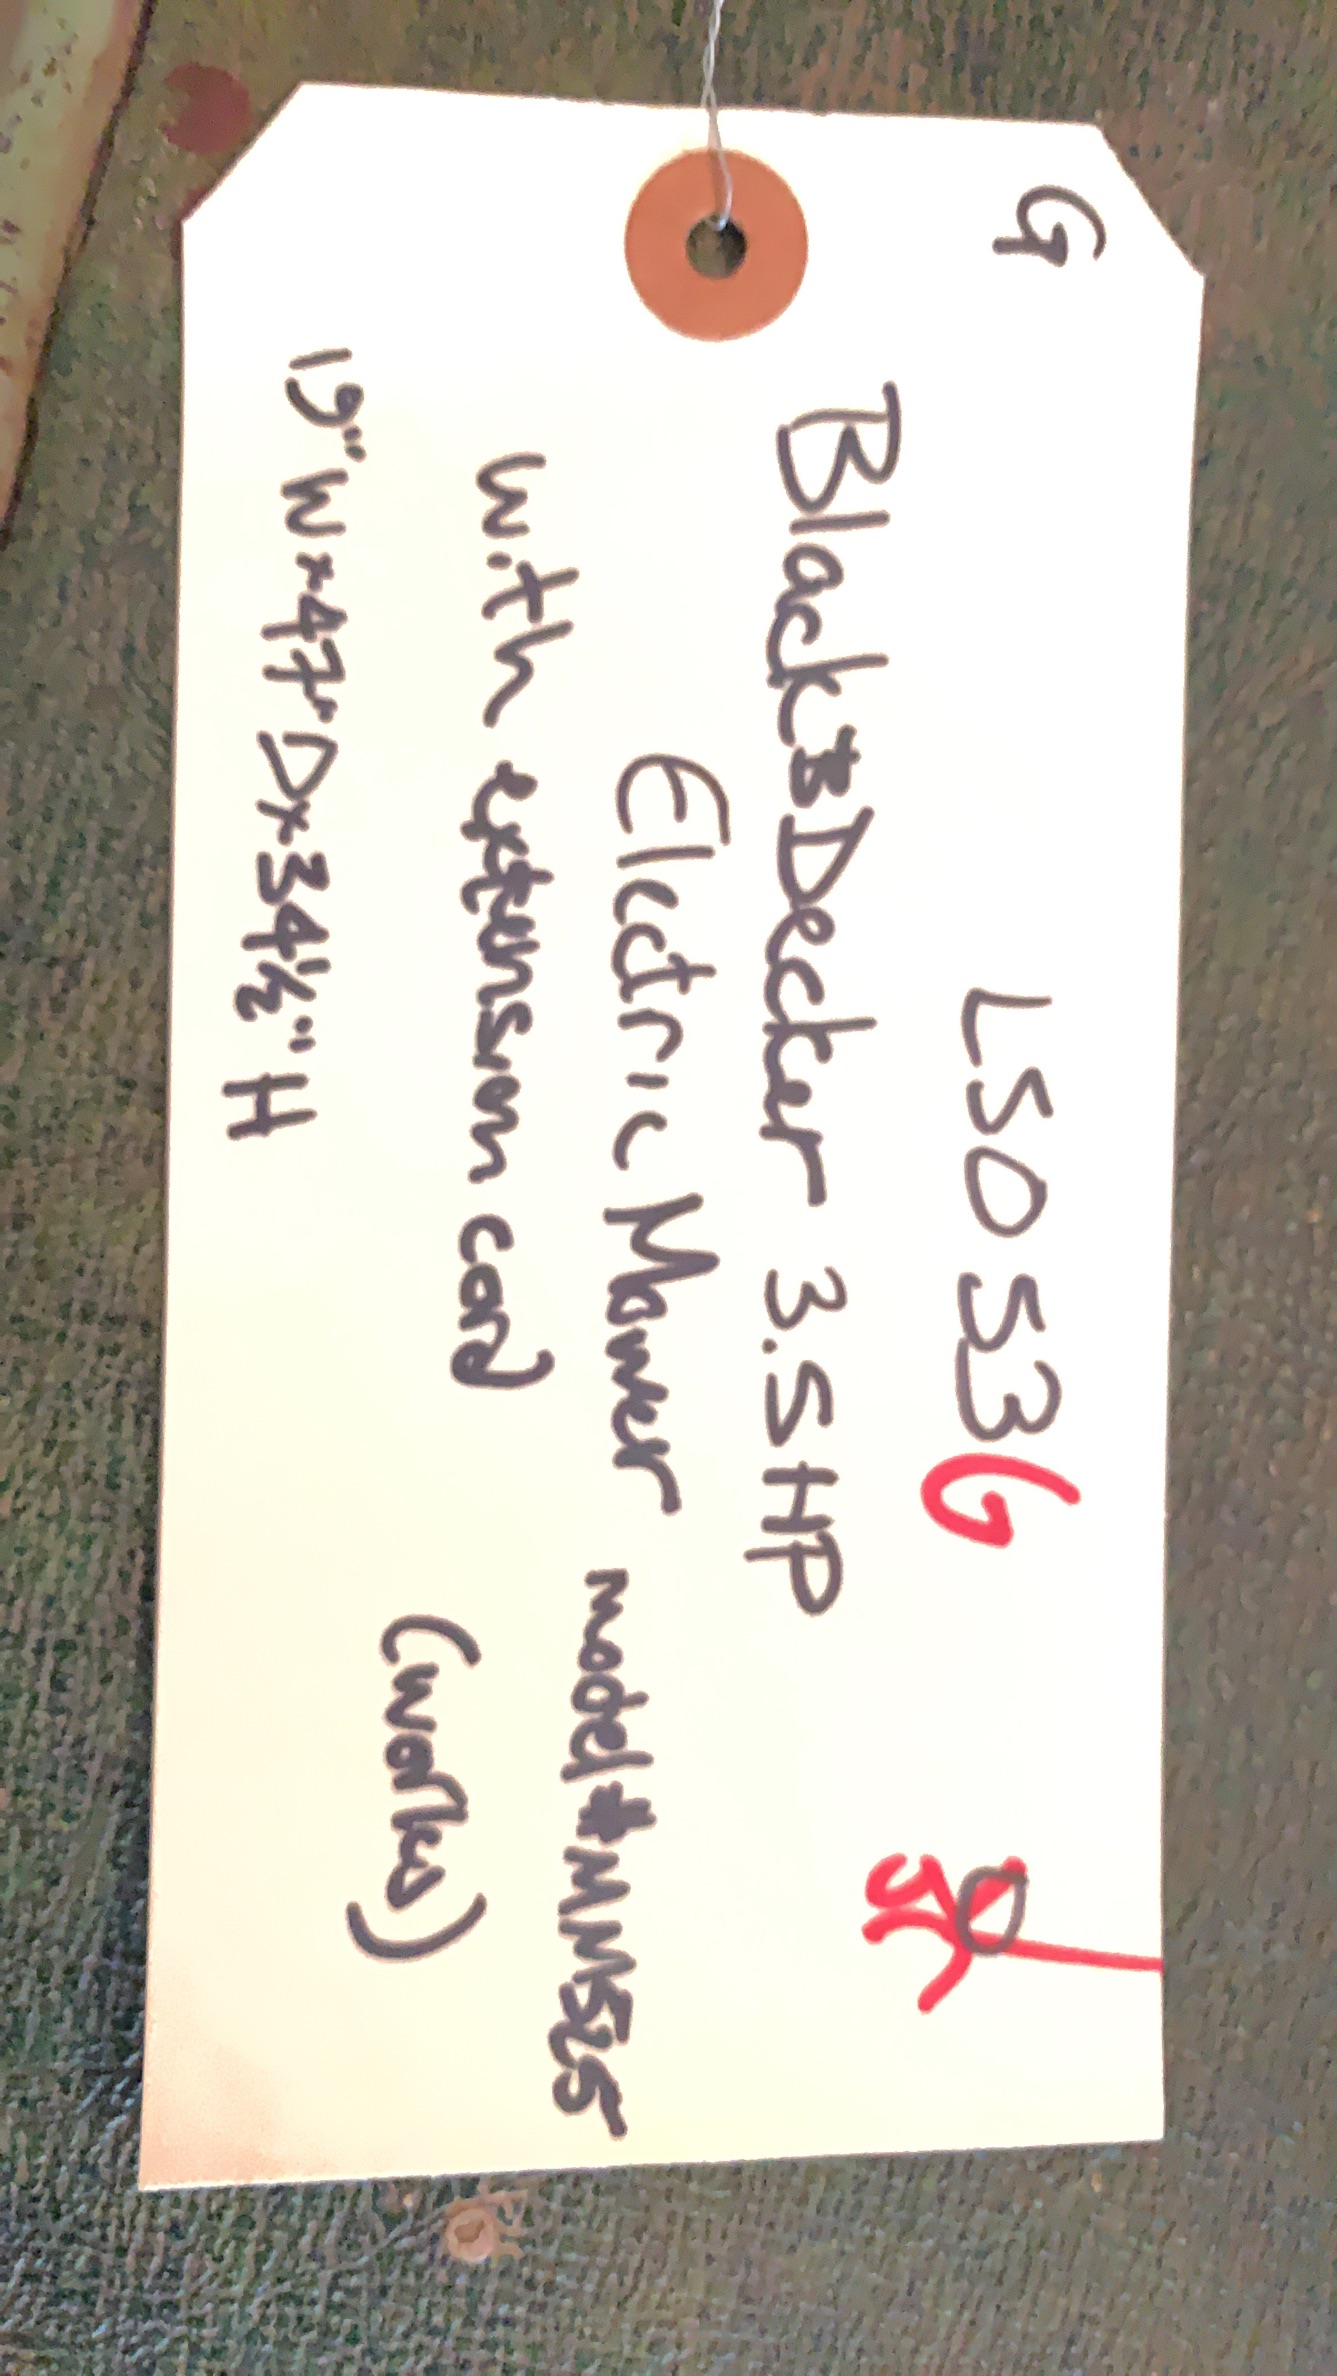 G
LS0536
Black & Decker 3.5HP
Electric Mower model # MM525
with extension cord
(works)
19" W x 47" D x 34 1/2" H